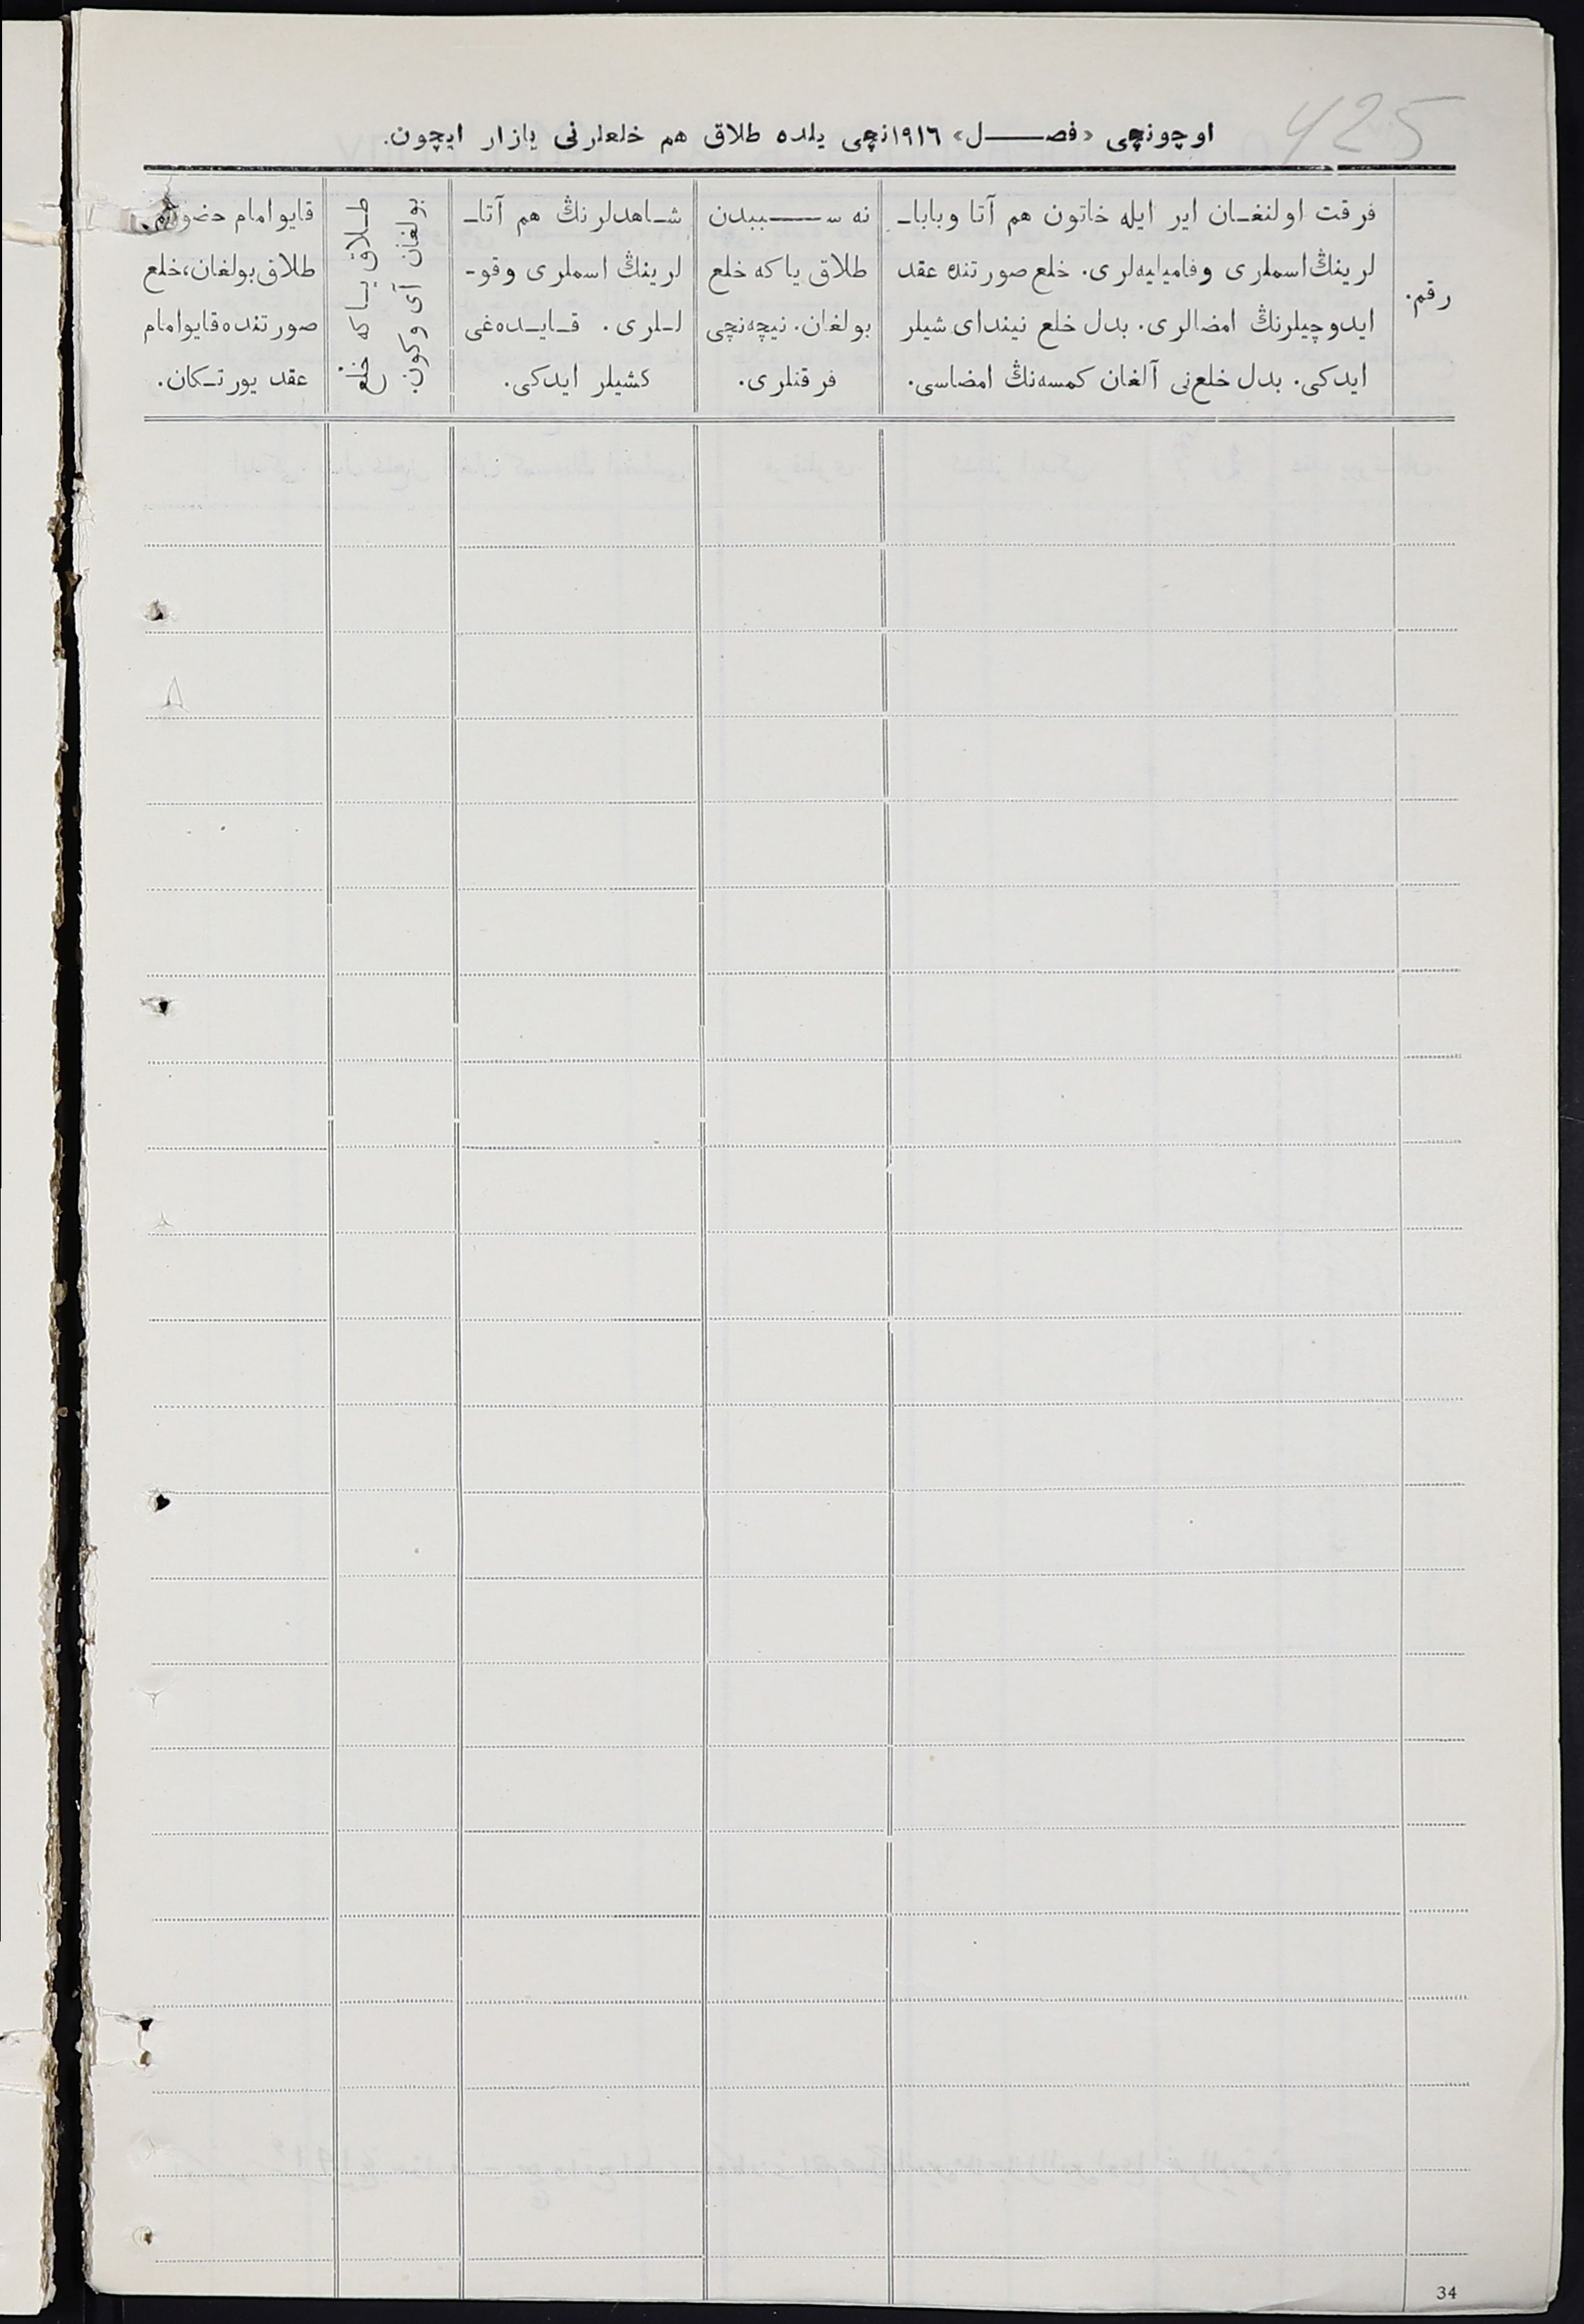 425
اوچونچی «فصـــل» ١٩١٦نچی یلده طلاق هم خلعلرنی یازار ایچون.
رقم.
فرقت اولنغـان ایر ایله خاتون هم آتا وبابا‌ـ
لرینڭ اسملری وفامیلیه‌لری. خلع صورتنده عقد
ایدوچیلرنڭ امضالری. بدل خلع نیندای شیلر
ایدکی. بدل خلع‌نی آلغان کمسه‌نڭ امضاسی.
نه ســـببدن
طلاق یاکه خلع
بولغان. نیچه‌نچی
فرقتلری.
شـاهدلرنڭ هم آتا‌ـ
لرینڭ اسملری وقو‌ـ
لـلری. قـایـده‌غی
کشیلر ایدکی.
طـلاق یـاکه خلع
بولغان آی وکون.
قایو امام حضورنده
طلاق بولغان، خلع
صورتنده قایو امام
عقد یورتـکان.
34